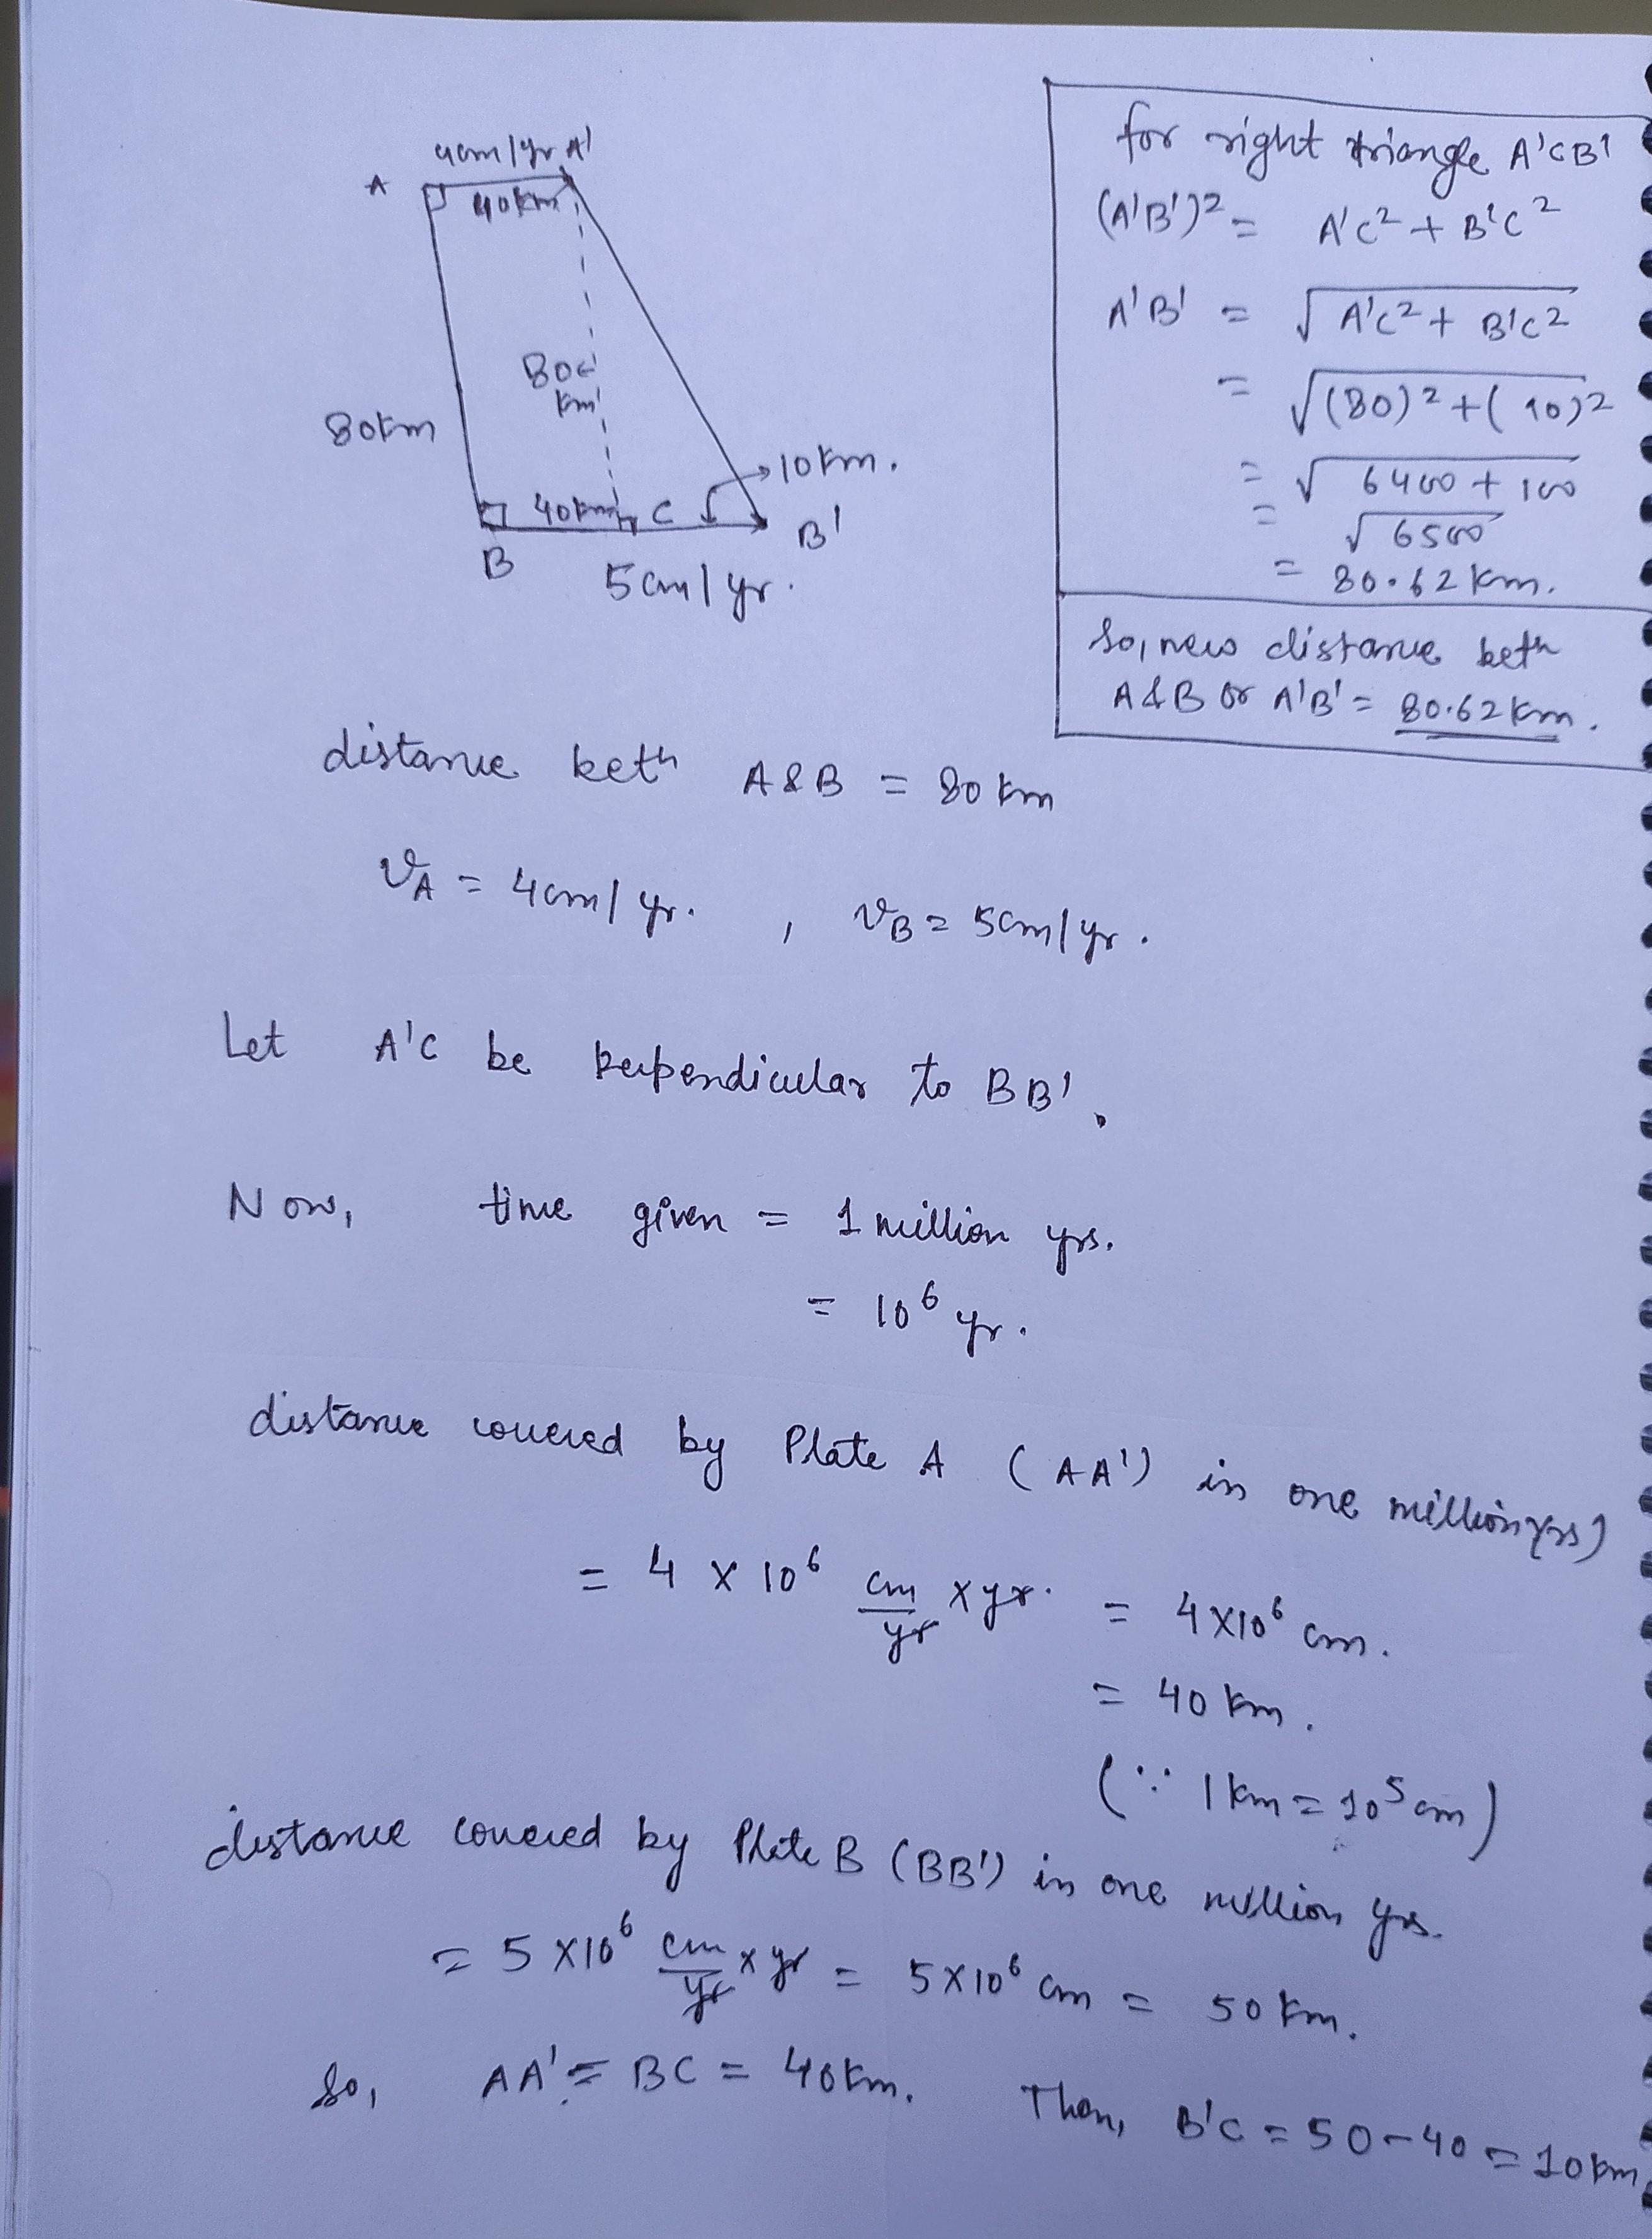 4cm/yr A'
A
40km
80
km
80km
10km.
40km C
B'
B
5cm/yr.
for right triangle A'CB'
(A'B')² = A'C² + B'C²
A'B' = √A'C² + B'C²
= √(80)² + (10)²
= √6400 + 100
= √6500
= 80.62 km.
So, new distance betn
A & B or A'B' = 80.62 km.
distance betn A & B = 80 km
vA = 4cm/yr. , vB = 5cm/yr.
Let A'C be perpendicular to BB'.
Now, time given = 1 million yrs.
= 10⁶ yr.
distance covered by Plate A (AA') in one million yrs)
= 4 × 10⁶ cm/yr × yr. = 4×10⁶ cm.
= 40 km.
(∵ 1km = 10⁵cm)
distance covered by Plate B (BB') in one million yrs.
= 5×10⁶ cm/yr × yr = 5×10⁶ cm = 50 km.
So, AA' = BC = 40km. Then, B'C = 50-40 = 10km